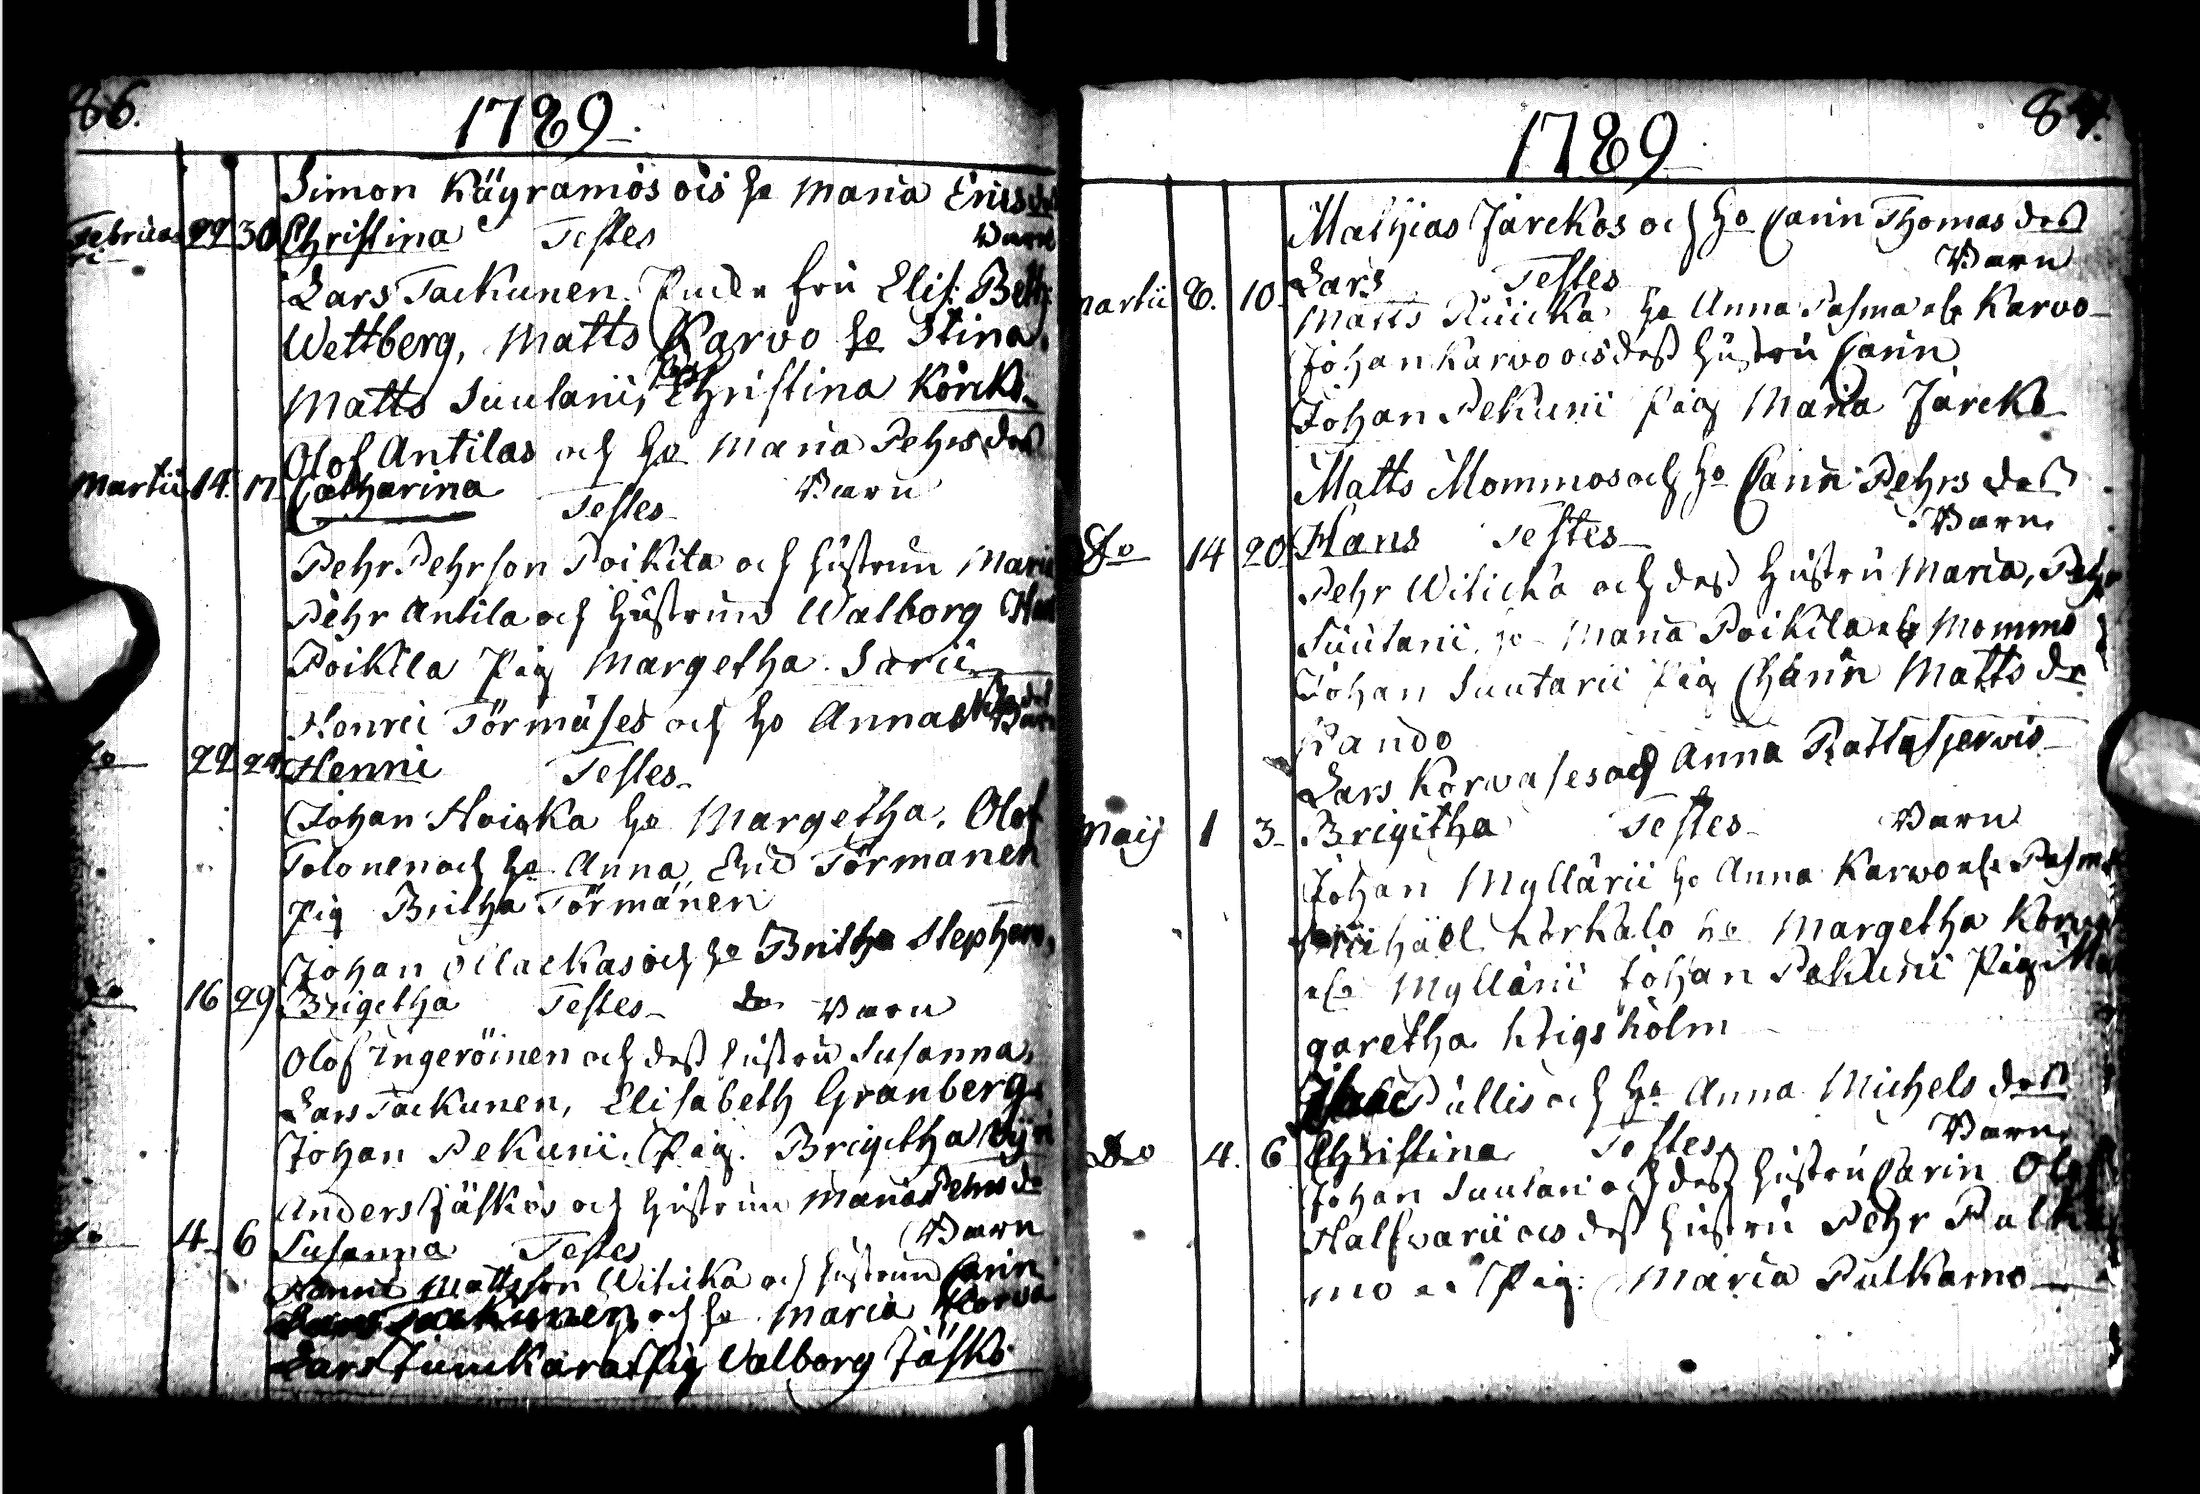 86.
1789.
Simon Käyramös ois ho Maria Erics dr
Februarii 22 30 Christina Testes Barn
Lars Tackunen Fru Elis: Beth:
Wettberg, Matts Karvo ho Stina.
Matts Suutarii, Pig Christina Körckö
Olof Antilas och ho Maria Pehrs dr
Martii 14. 17 Catharina Testes Barn
Pehr Pehrson Poikila och hustrun Maria
Pehr Antila och hustrun Walborg
Poikila Pig Margetha Sarii
Henric Törmäses och ho Anna Barn
Do 22 24 Henric Testes
Johan Hoicka ho Margetha, Olof
Tolonen och ho Anna Eric Törmänen
Pig Britha Törmänen
Johan Ollackas och ho Britha Stephens
Do 16 29 Brigetha Testes dr Barn
Olof Ingeröinen och dess hustru Susanna,
Lars Tackunen, Elisabeth Granberg
Johan Pekurii, Pig. Brigitha
Anders Jäskös och hustrun Maria Pehrs dr
Do 4 6 Susanna Testes Barn
Henric Mattsson Witicka och hustrun Carin
Lars Tackunen och ho Maria Korva
Lars Junckara Pig Valborg Jäskö
1789
87.
Mathias Järckös och ho Carin Thomas dotr
Martii 8. 10 Lars Testes Barn
Matts Ruicka ho Anna Pasma Karvo
Johan Karvo ois dess hustru Carin
Johan Pekurii Pig Maria Järckö
Matts Mommos och ho Carin Pehrs dotr
Do 14 20 Hans Testes Barn
Pehr Witicka och dess hustru Maria, Pehr
Suutarii, ho Maria Poikila Mommo
Johan Suutarii Pig Charin Matts dr
Rando
Lars Korvases och Anna Rattasjervis
Maij 1 3 Brigitha Testes Barn
Johan Myllärii ho Anna Karwo Pasma
Michäel Körkälö ho Margetha Korva
Myllärii Johan Pekurii Pig Mar
garetha Krigsholm
Pullis och ho Anna Michels dotr
Do 4. 6 Christina Testes Barn
Johan Suutari och dess hustru Carin Olof
Halfvarii ois dess hustru Pehr Pulka
mo Pig: Maria Pulkamo